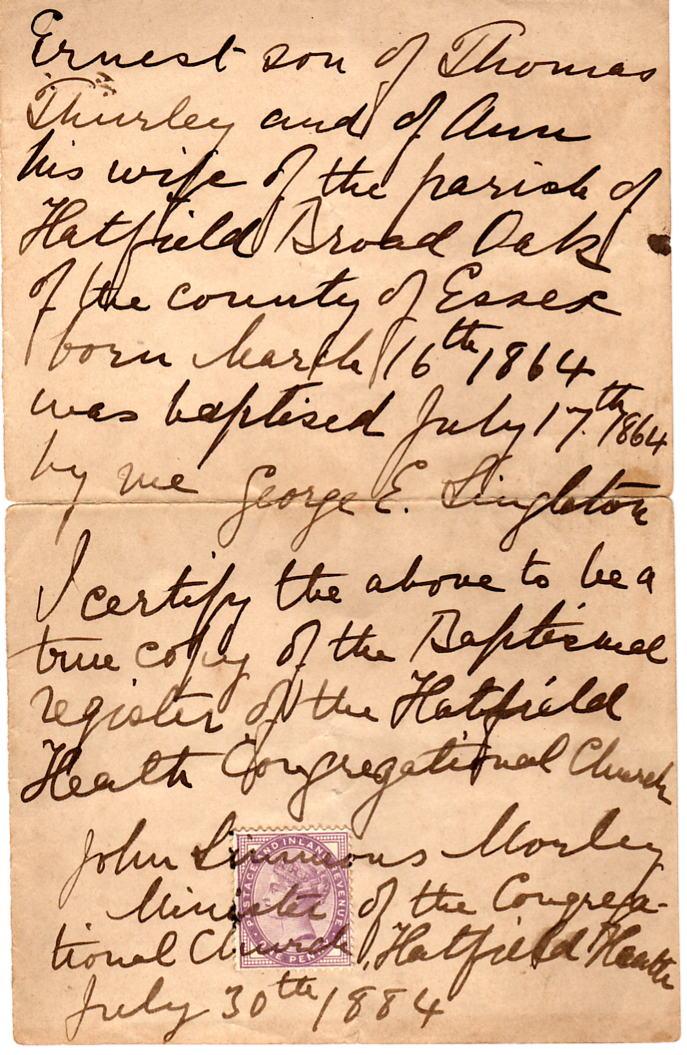 Ernest son of Thomas
Thurley and of Ann
his wife of the parish of
Hatfield Broad Oak
of the county of Essex
born March 16th 1864
was baptised July 17th 1864
by me George E. Singleton
I certify the above to be a
true copy of the Baptismal
register of the Hatfield
Heath Congregational Church
John Simmons Morley
Minister of the Congrega-
tional Church, Hatfield Heath
July 30th 1884
POSTAGE AND INLAND REVENUE
ONE PENNY